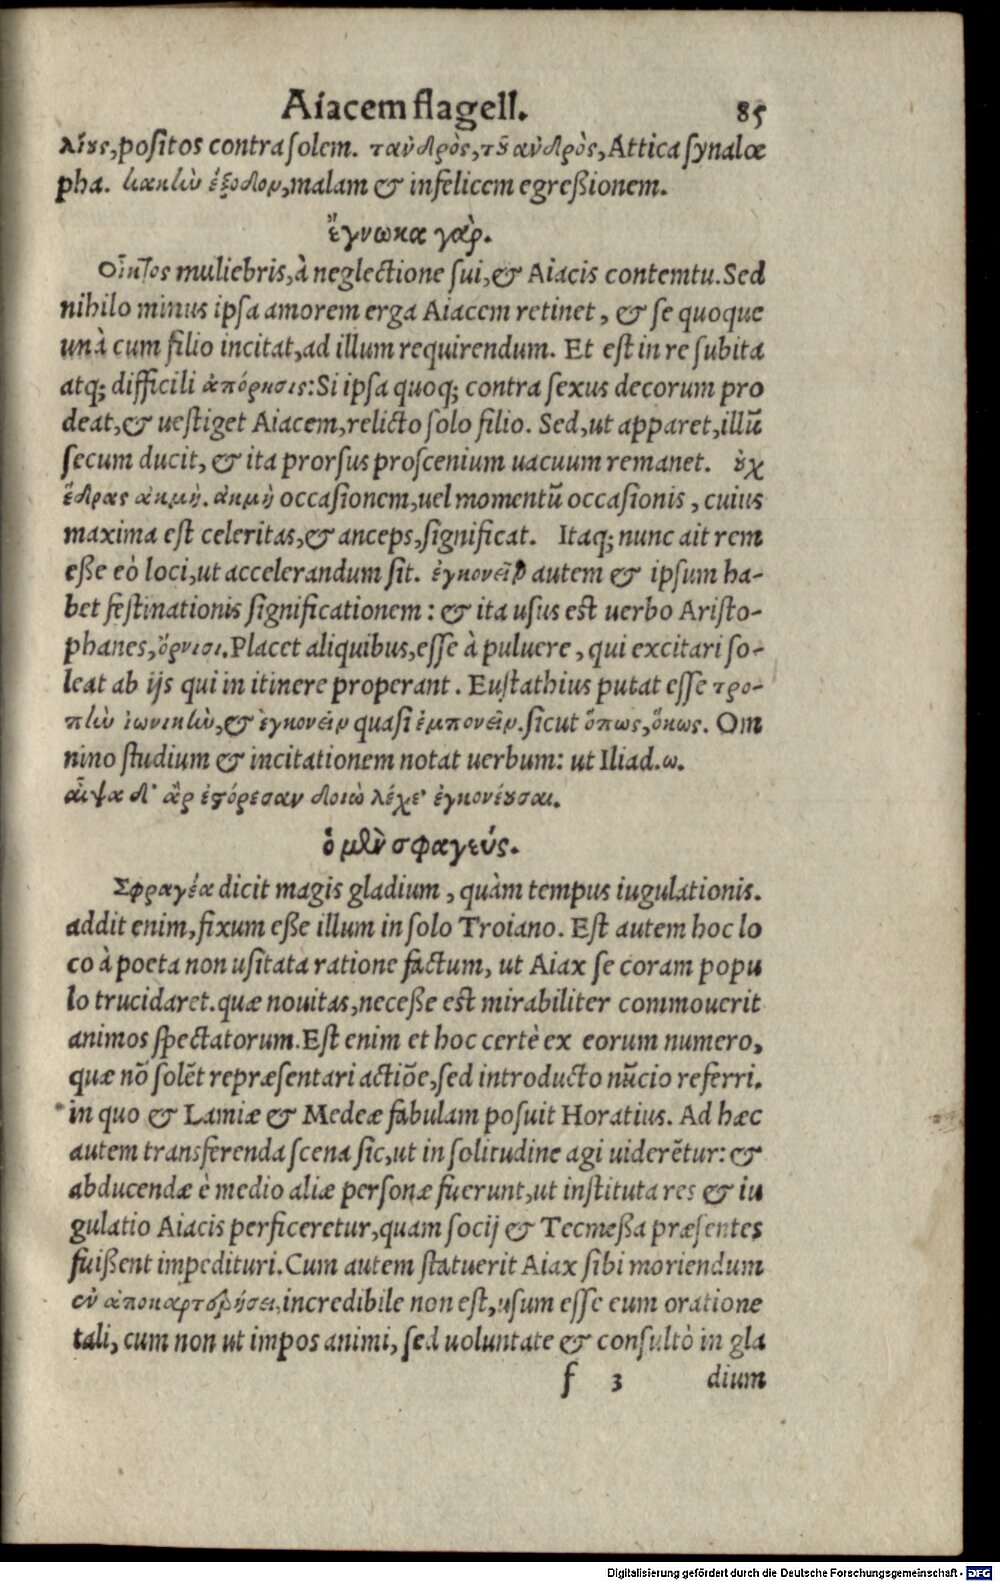 Aiacem flagell. 85
λίους, positos contra solem. τανδρὸς, τȣ͂ ἀνδρὸς, Attica synalœ
pha. κακὴν ἔξοδον, malam & infelicem egreßionem.
ἔγνωκα γὰρ.
Οἶκτος muliebris, à neglectione sui, & Aiacis contemtu. Sed
nihilo minus ipsa amorem erga Aiacem retinet, & se quoque
unà cum filio incitat, ad illum requirendum. Et est in re subita
atq; difficili ἀπόρησις: Si ipsa quoq; contra sexus decorum pro
deat, & uestiget Aiacem, relicto solo filio. Sed, ut apparet, illũ
secum ducit, & ita prorsus proscenium uacuum remanet. οὐχ
ἕδρας ἀκμὴ. ἀκμὴ occasionem, uel momentũ occasionis, cuius
maxima est celeritas, & anceps, significat. Itaq; nunc ait rem
eße eò loci, ut accelerandum sit. ἐγκονεῖν autem & ipsum ha-
bet festinationis significationem: & ita usus est uerbo Aristo-
phanes, ὄρνισι. Placet aliquibus, esse à puluere, qui excitari so-
leat ab ijs qui in itinere properant. Eustathius putat esse τρο-
πὴν ἰωνικὴν, & ἐγκονεῖν quasi ἐμπονεῖν. sicut ὅπως, ὅκως. Om
nino studium & incitationem notat uerbum: ut Iliad. ω.
αἶψα δ' ἂρ ἐστόρεσαν δοιὼ λέχε' ἐγκονέουσαι.
ὁ μὲν σφαγεύς.
Σφραγέα dicit magis gladium, quàm tempus iugulationis.
addit enim, fixum eße illum in solo Troiano. Est autem hoc lo
co à poeta non usitata ratione factum, ut Aiax se coram popu
lo trucidaret. quæ nouitas, neceße est mirabiliter commouerit
animos spectatorum. Est enim et hoc certè ex eorum numero,
quæ nõ solẽt repræsentari actiõe, sed introducto nũcio referri.
in quo & Lamiæ & Medeæ fabulam posuit Horatius. Ad hæc
autem transferenda scena sic, ut in solitudine agi uiderẽtur: &
abducendæ è medio aliæ personæ fuerunt, ut instituta res & iu
gulatio Aiacis perficeretur, quam socij & Tecmeßa præsentes
fuißent impedituri. Cum autem statuerit Aiax sibi moriendum
ἐν ἀποκαρτερήσει, incredibile non est, usum esse eum oratione
tali, cum non ut impos animi, sed uoluntate & consultò in gla
f 3 dium
Digitalisierung gefördert durch die Deutsche Forschungsgemeinschaft - DFG